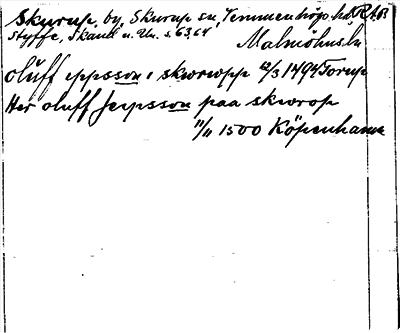 Skurup, by, Skurup sn, Vemmenhögs hd, RAB
Styffe, Skand u. Un. s 63,64
Malmöhus ln
oluff eppsson i skwrwpp 12/3 1494 Torup
Her oluff Jeipsson paa skwrop
11/11 1500 Köpenhamn